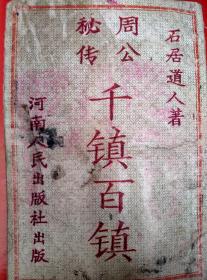 石居道人著
周公
秘传
千镇百镇
河南人民出版社出版